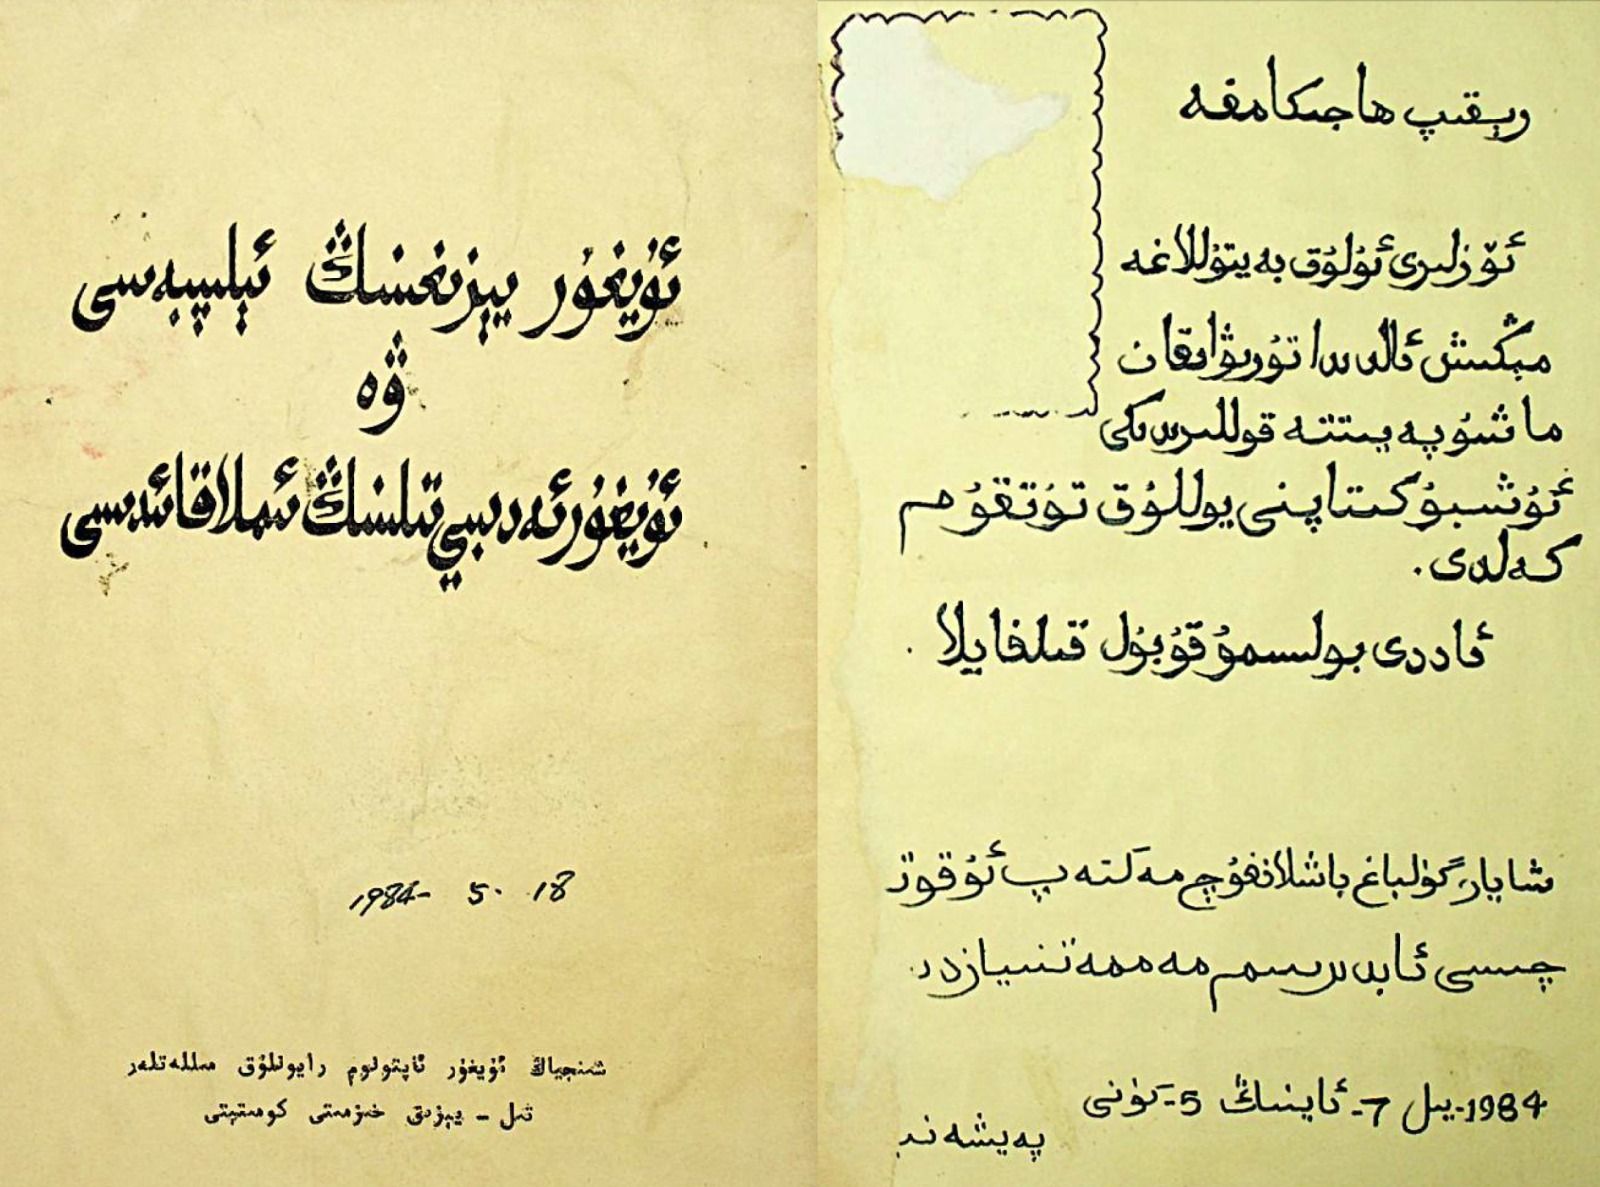 ئۇيغۇر يېزىغىنىڭ ئېلىپبەسى
ۋە
ئۇيغۇر ئەدىبىي تىلىنىڭ ئىملا قائىدىسى
1984- 5. 18
شىنجياڭ ئۇيغۇر ئاپتونوم رايونلۇق مىللەتلەر
تىل - يېزىق خىزمىتى كومىتېتى
رېقىپ ھاجىكامغە
ئۆزلىرى ئۇلۇق بەيتۇللاغە
مېڭىش ئالدىدا تۇرىۋاتقان
مۇشۇ پەيىتتە قوللىرىدىكى
ئۇشبۇ كىتاپنى يوللۇق تۇتقۇم
كەلدى.
ئاددى بولسىمۇ قۇبۇل قىلغايلا.
شايار، گۈلباغ باشلانغۇچ مەكتەپ ئۇقۇت
چىسى ئابدىرىم مەممەتنىيازدىن
1984-يىل 7-ئاينىڭ 5-كۈنى
پەيشەنبە